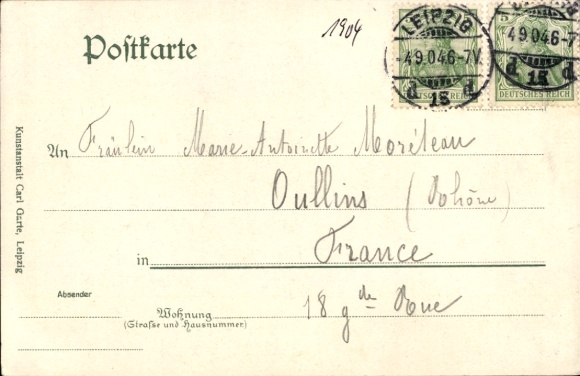 1904
Postkarte
LEIPZIG
-4.9.04.6-7V.
d 15 d
DEUTSCHES REICH
LEIPZIG
4.9.04.6-7
d 15
DEUTSCHES REICH
5
An Fräulein Marie-Antoinette Moréteau
Oullins (Rhône)
in France
18 gde Rue
Absender
Wohnung
(Straße und Hausnummer)
Kunstanstalt Carl Garte, Leipzig